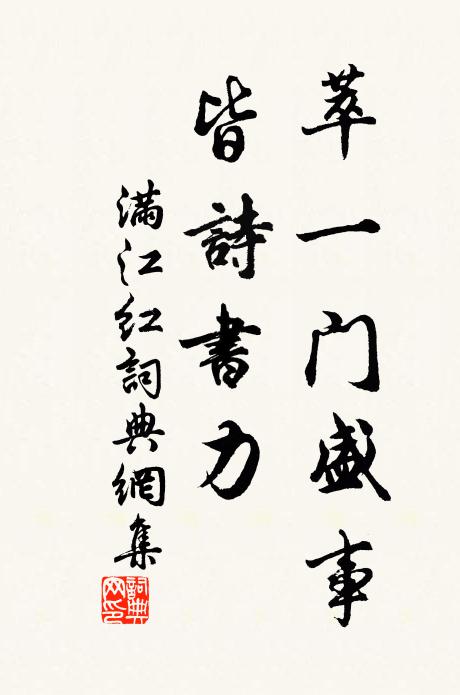 萃一门盛事
皆詩書力
满江红詞典網集
詞典
网印